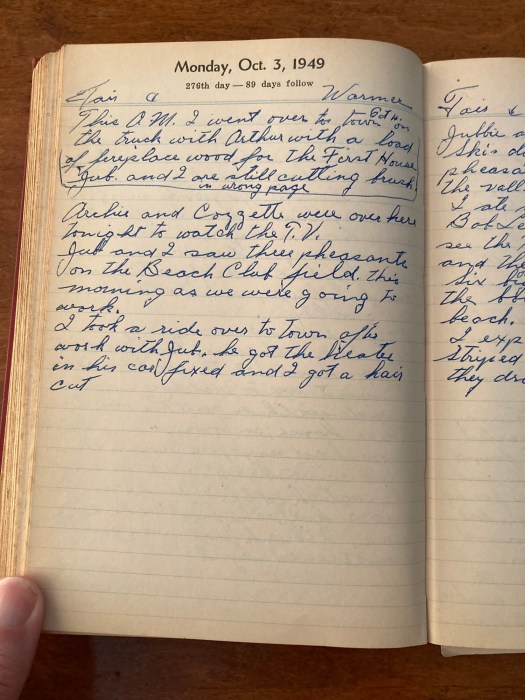 Monday, Oct. 3, 1949
276th day — 89 days follow
Fair & Warmer
This A.M. I went over to town Oct 4. on
the truck with Arthur with a load
of fireplace wood for the First House
Jub. and I are still cutting brush
in wrong page
Archie and Cozzette were over here
tonight to watch the T.V.
Jub and I saw three pheasants
on the Beach Club field. this
morning as we were going to
work.
I took a ride over to town after
work with Jub. he got the heater
in his car fixed and I got a hair
cut
Fair &
Jubbie a
Skis d
pheasa
the vall
I ate
Bob Le
see the
and th
six
the
beach.
I exp
Striped
they dr